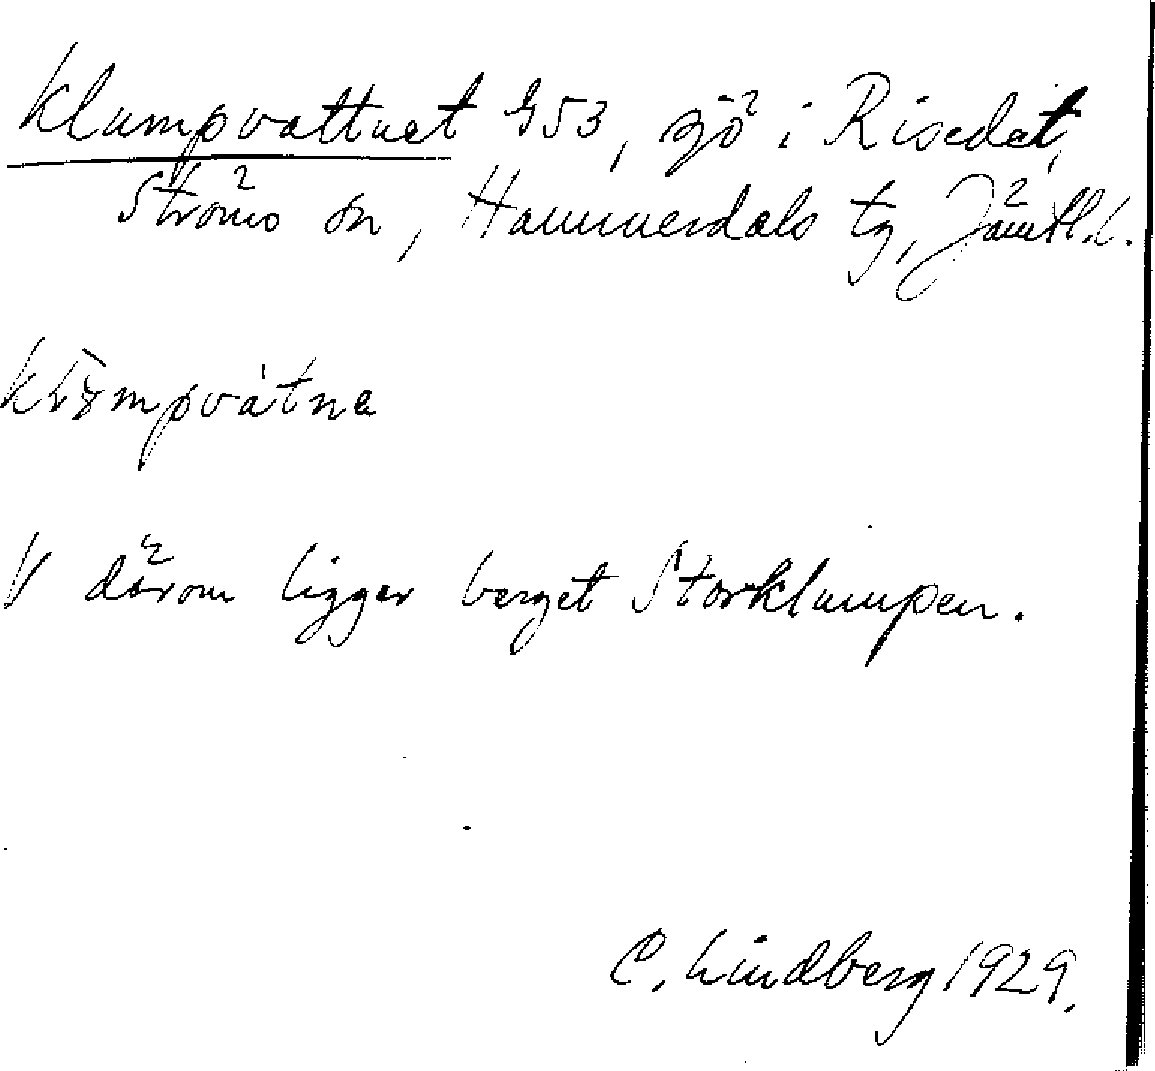 Klumpvattnet G53, sjö i Risedet,
Ströms sn, Hammerdals tg, Jämtl.l.
V därom ligger berget Storklumpen.
C. Lindberg 1929.